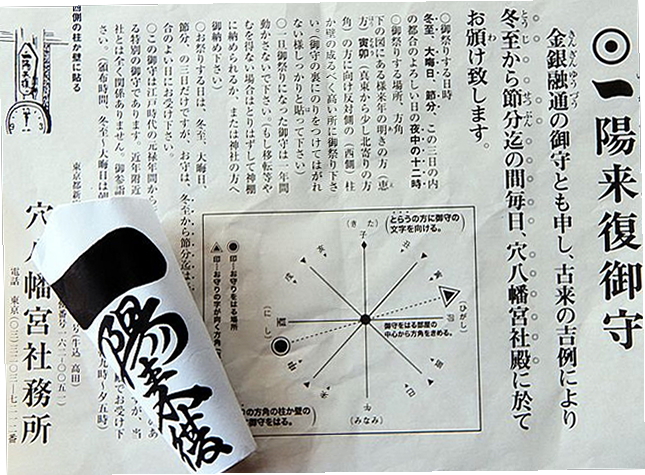 一陽来復御守
金銀融通の御守とも申し、古来の吉例により
冬至から節分迄の間毎日、穴八幡宮社殿に於て
お頒け致します。
○御祭りする日時
冬至、大晦日、節分、この三日の内
の都合のよろしい日の夜中の十二時
○御祭りする場所、方角
下の図にある様来年の明きの方（恵
方）寅卯（真東から少し北寄りの方
角）の方に向け反対側の（西側）柱
か壁の成るべく高い所に御祭り下さ
い。（御守の裏にのりをつけてはがれ
ない様しっかりと貼って下さい）
○一旦御祭りになった御守は一年間
動かさないで下さい。（もし移転等や
むを得ない場合はとりはずして神棚
に納められるか、または神社の方へ
御納め下さい）
○お祭りする日は、冬至、大晦日、
節分、の三日だけですが、お守は、冬至から節分迄は
合のよい日にお受け下さい。
○この御守は江戸時代の元禄年間から
る特別の御守であります。近年附近
社とは全く関係ありません。御参詣
さい。（頒布時間、冬至〜大晦日は朝
西側の柱か壁に貼る
東京都新
穴八幡宮社務所
電話 東京（〇三）三二〇三―七二一二番
とらうの方に御守の
文字を向ける。
（きた）
子
（ひがし）
（みなみ）
（にし）
酉
御守をはる部屋の
中心から方角をきめる。
の方角の柱か壁の
御守をはる。
印―お守りをはる場所
印―お守りの字が向く方角
一陽来復